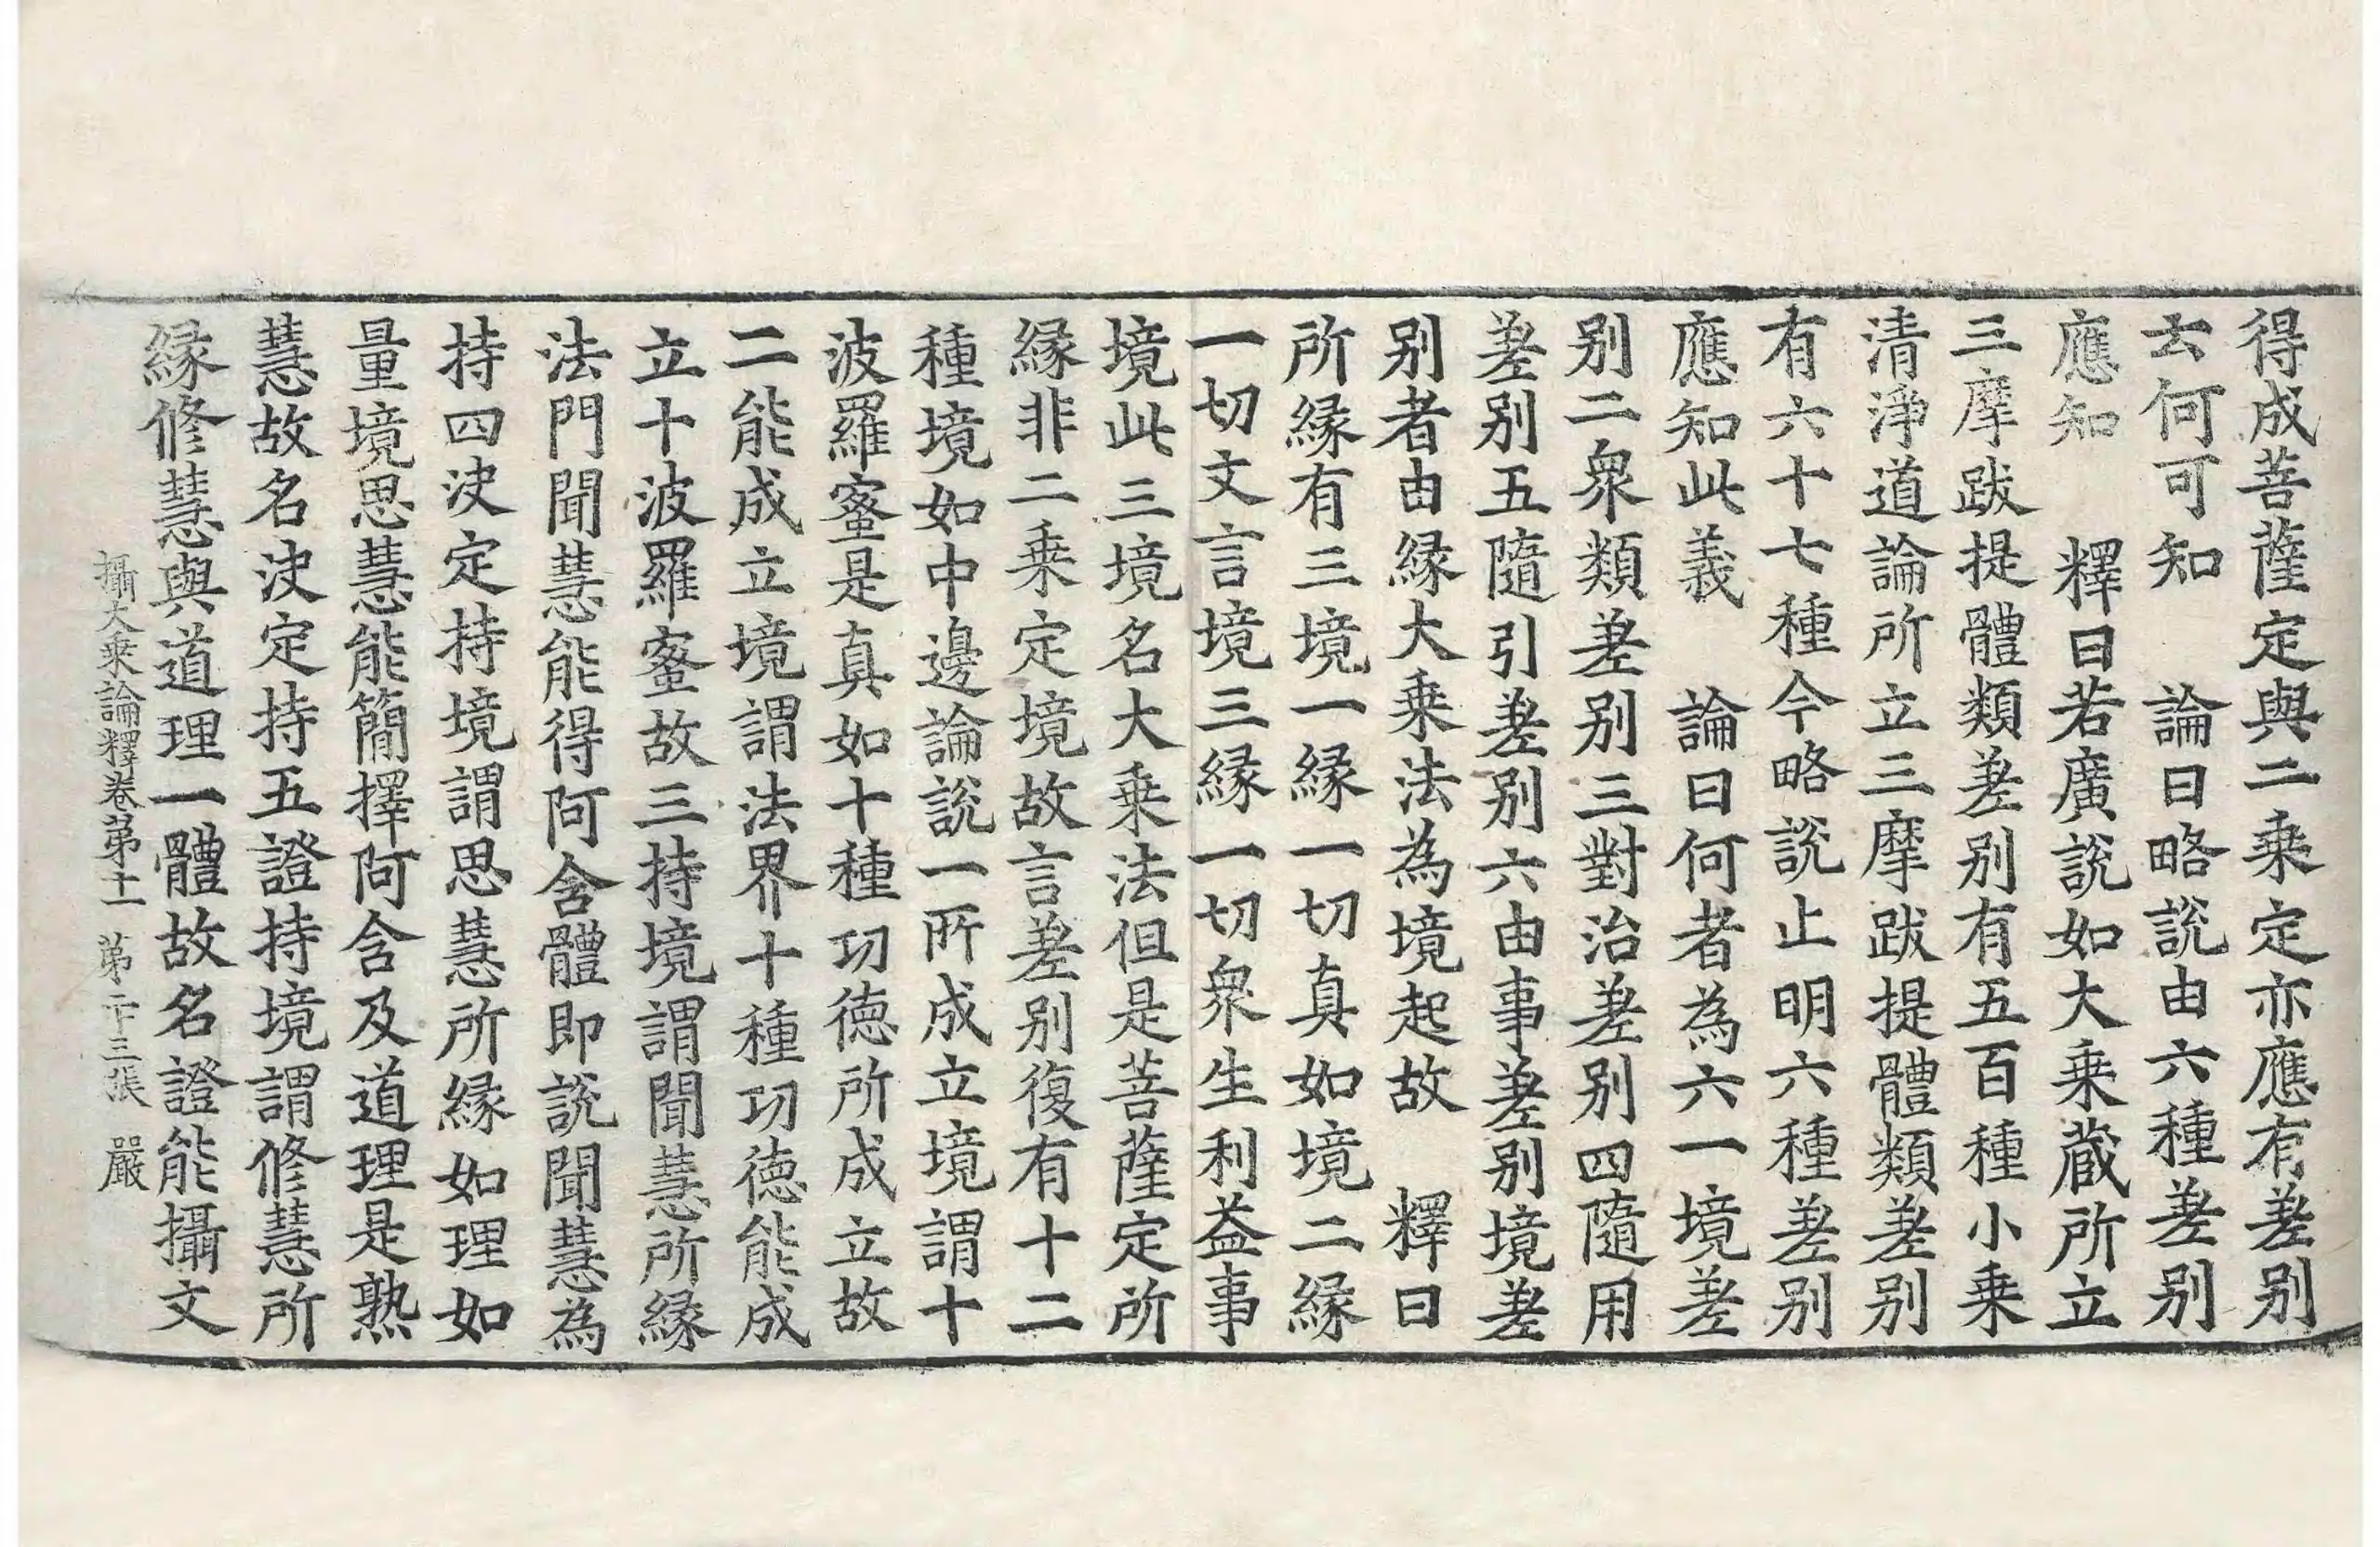 得成菩薩定與二乗定亦應有差别
去何可知　論曰略説由六種差别
應知　釋曰若廣説如大乗蔵所立
三摩跋提體類差别有五百種小乗
清淨道論所立三摩跋提體類差别
有六十七種今略説止明六種差别
應知此義　論曰何者為六一境差
别二衆類差别三對治差别四隨用
差别五隨引差别六由事差别境差
别者由縁大乗法為境起故　釋曰
所縁有三境一縁一切真如境二縁
一切文言境三縁一切衆生利益事
境此三境名大乗法但是菩薩定所
縁非二乗定境故言差别復有十二
種境如中邊論説一所成立境謂十
波羅蜜是真如十種功徳所成立故
二能成立境謂法界十種功徳能成
立十波羅蜜故三持境謂聞慧所縁
法門聞慧能得阿含體即説聞慧為
持四決定持境謂思慧所縁如理如
量境思慧能簡擇阿含及道理是熟
慧故名決定持五證持境謂修慧所
縁修慧與道理一體故名證能攝文
攝大乗論釋卷第十一　第二十三張　嚴